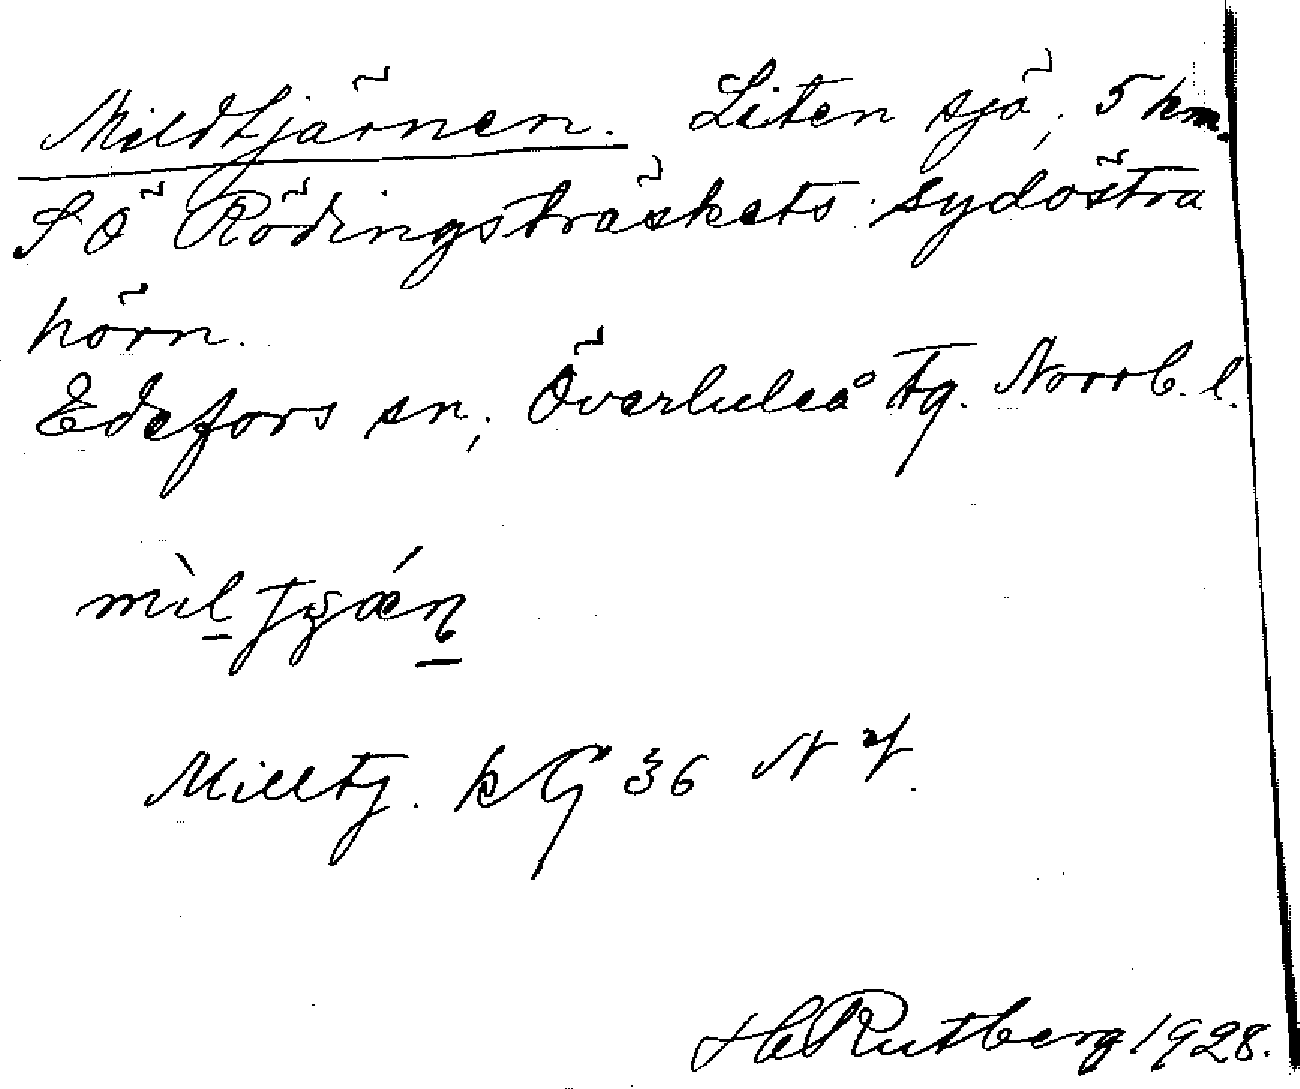 Mildtjärnen. Liten sjö, 5 km.
SÖ Rödingsträskets sydöstra
hörn.
Edefors sn, Överluleå tg. Norrb. l.
Milltj. kG 36 NV.
H Rutberg 1928.